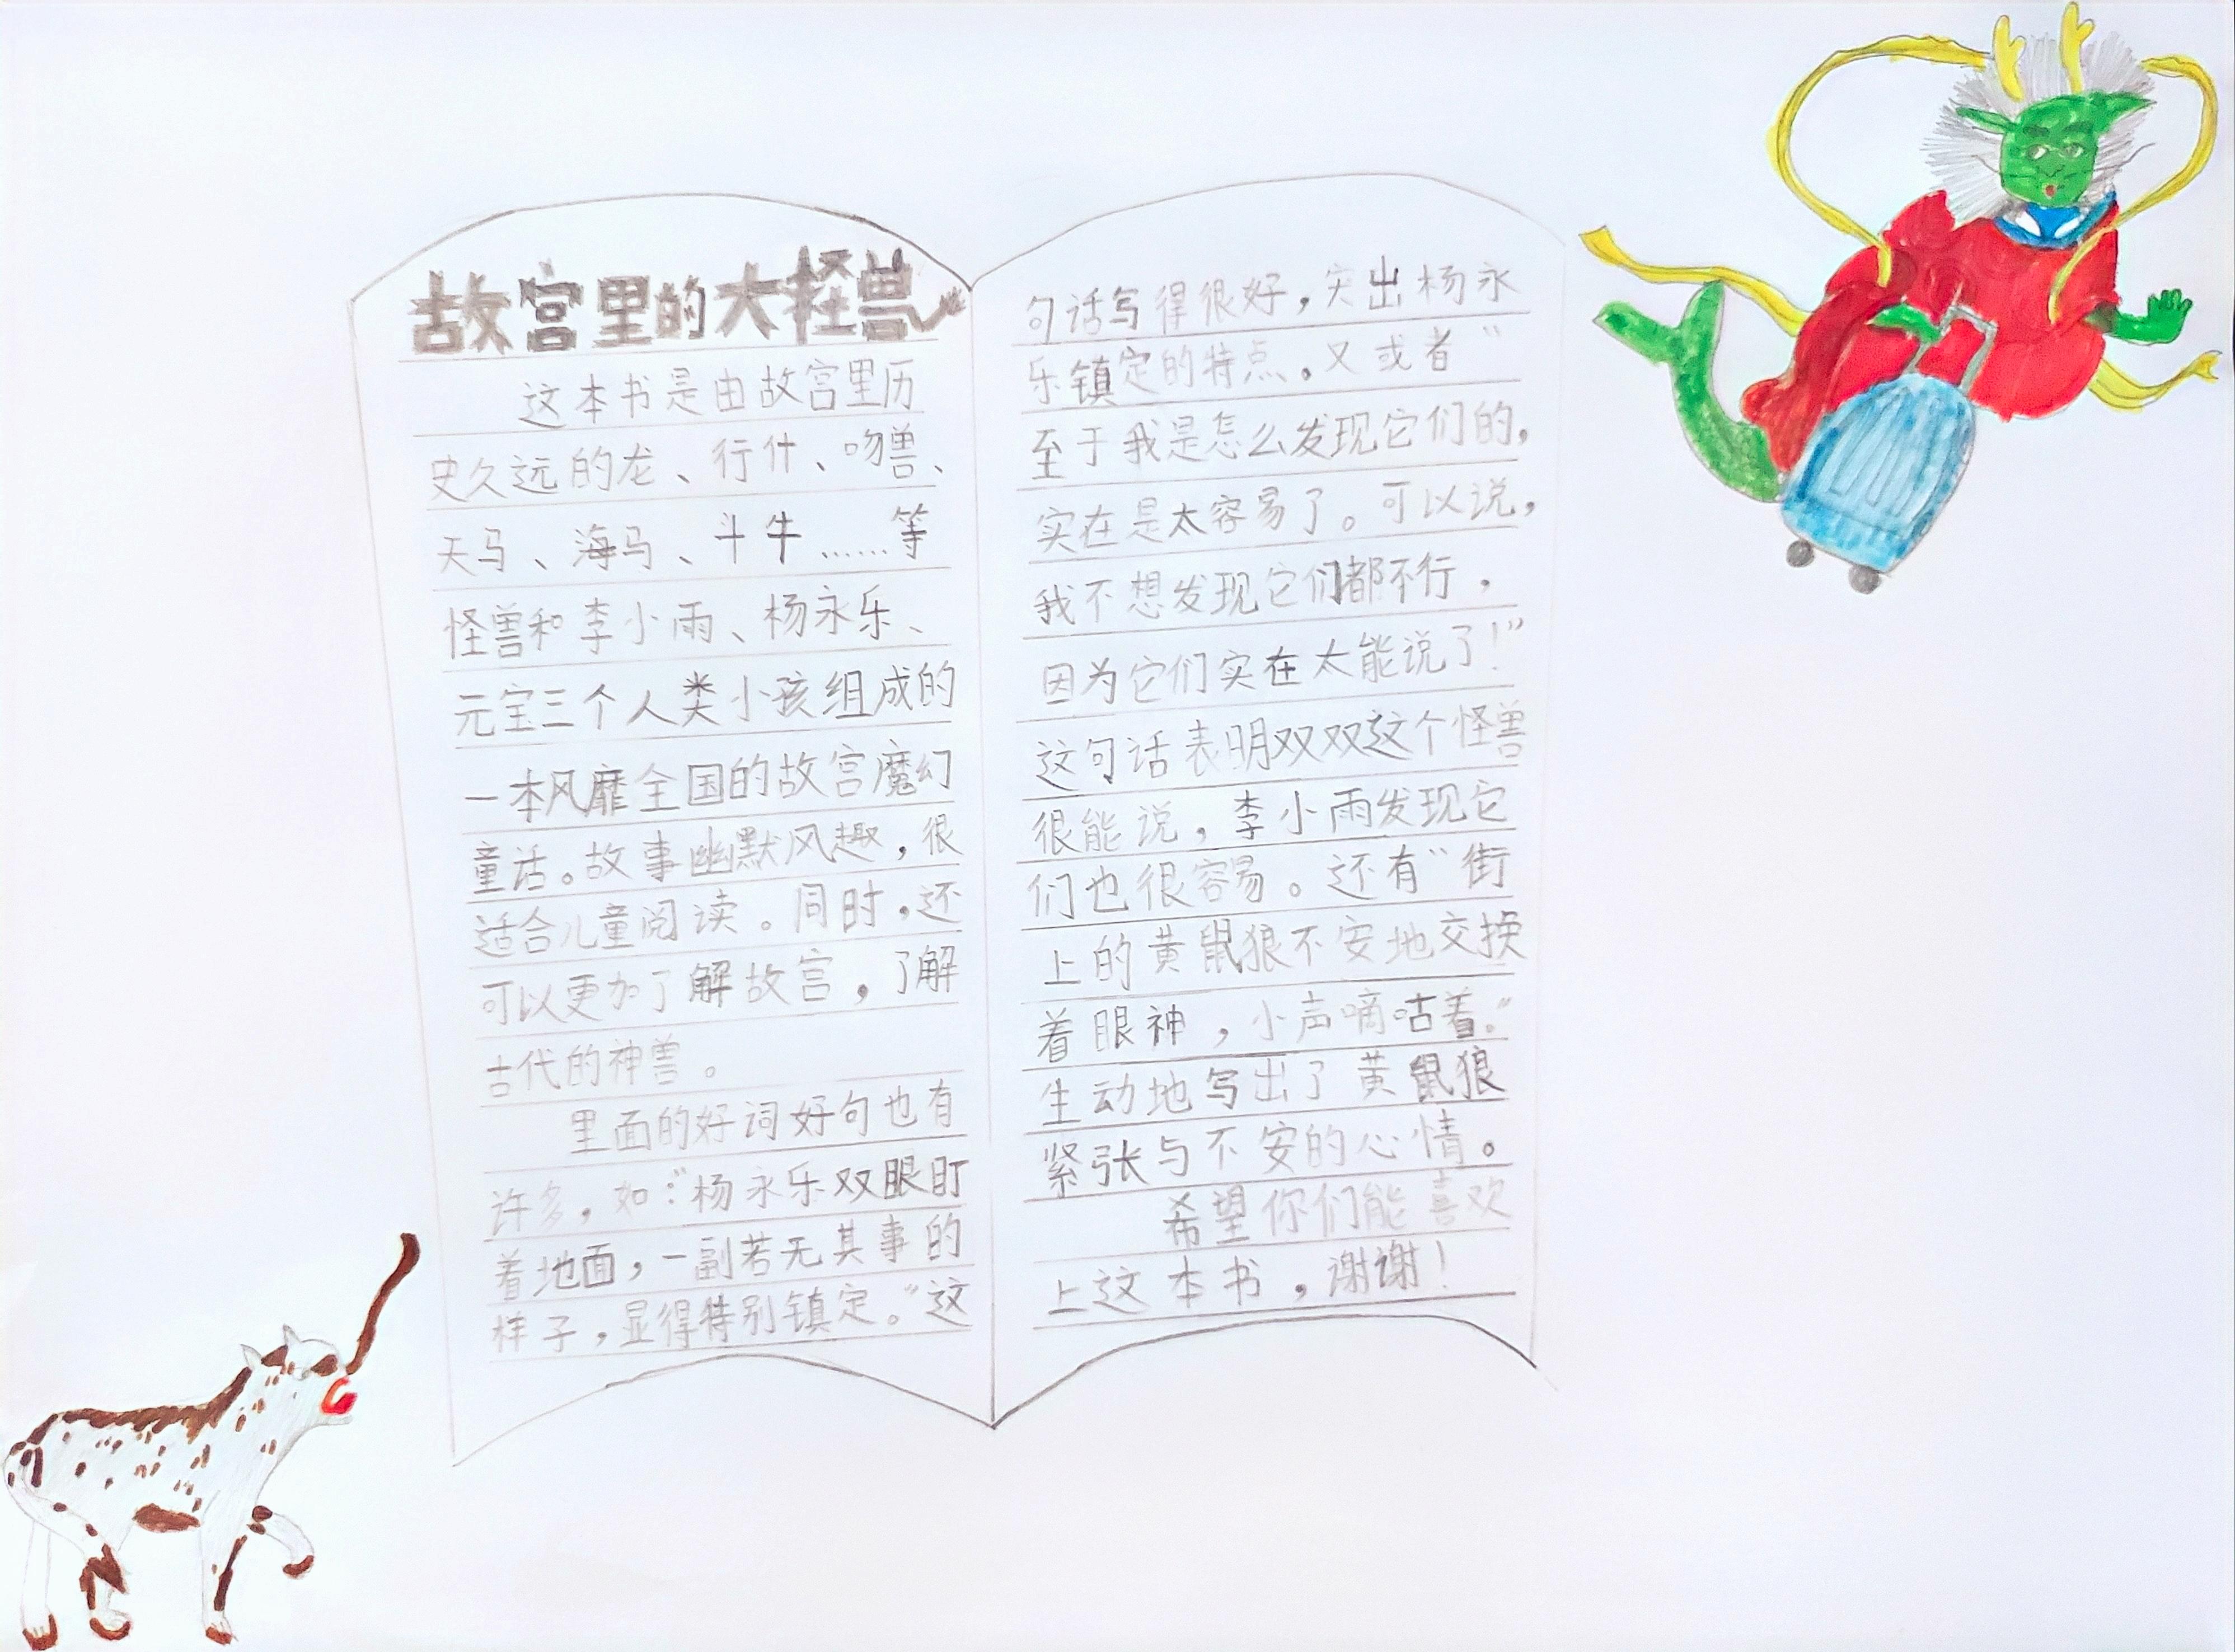 故宫里的大怪兽
这本书是由故宫里历
史久远的龙、行什、吻兽、
天马、海马、斗牛……等
怪兽和李小雨、杨永乐、
元宝三个人类小孩组成的
一本风靡全国的故宫魔幻
童话。故事幽默风趣，很
适合儿童阅读。同时，还
可以更加了解故宫，了解
古代的神兽。
里面的好词好句也有
许多，如：“杨永乐双眼盯
着地面，一副若无其事的
样子，显得特别镇定。”这
句话写得很好，突出杨永
乐镇定的特点。又或者“
至于我是怎么发现它们的，
实在是太容易了。可以说，
我不想发现它们都不行，
因为它们实在太能说了！”
这句话表明双双这个怪兽
很能说，李小雨发现它
们也很容易。还有“街
上的黄鼠狼不安地交换
着眼神，小声嘀咕着。”
生动地写出了黄鼠狼
紧张与不安的心情。
希望你们能喜欢
上这本书，谢谢！